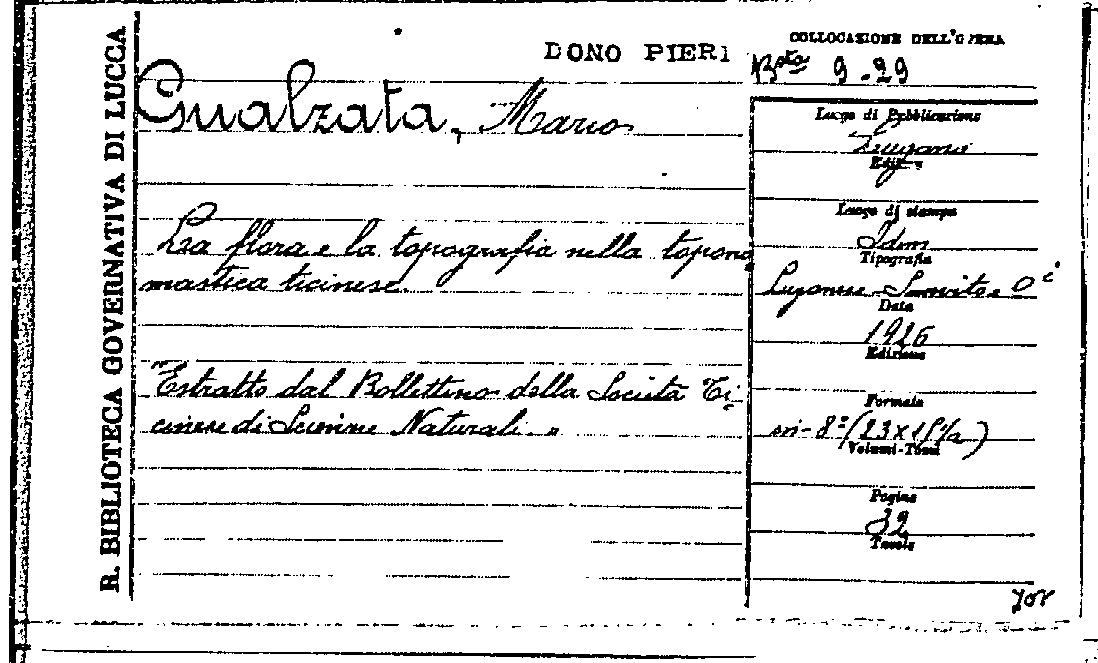 R. BIBLIOTECA GOVERNATIVA DI LUCCA
DONO PIERI
COLLOCAZIONE DELL'OPERA
Bsta 9-29
Gualzata, Mario
La flora e la topografia nella topono
mastica ticinese.
Estratto dal Bollettino della Società Ti-
cinese di Scienze Naturali.
Luogo di Pubblicazione
Lugano
Editore
Luogo di stampa
Idem
Tipografia
Luganese
Data
1926
Edizione
Formato
in-8º (23x
Volumi-Tomi
Pagine
32
Tavole